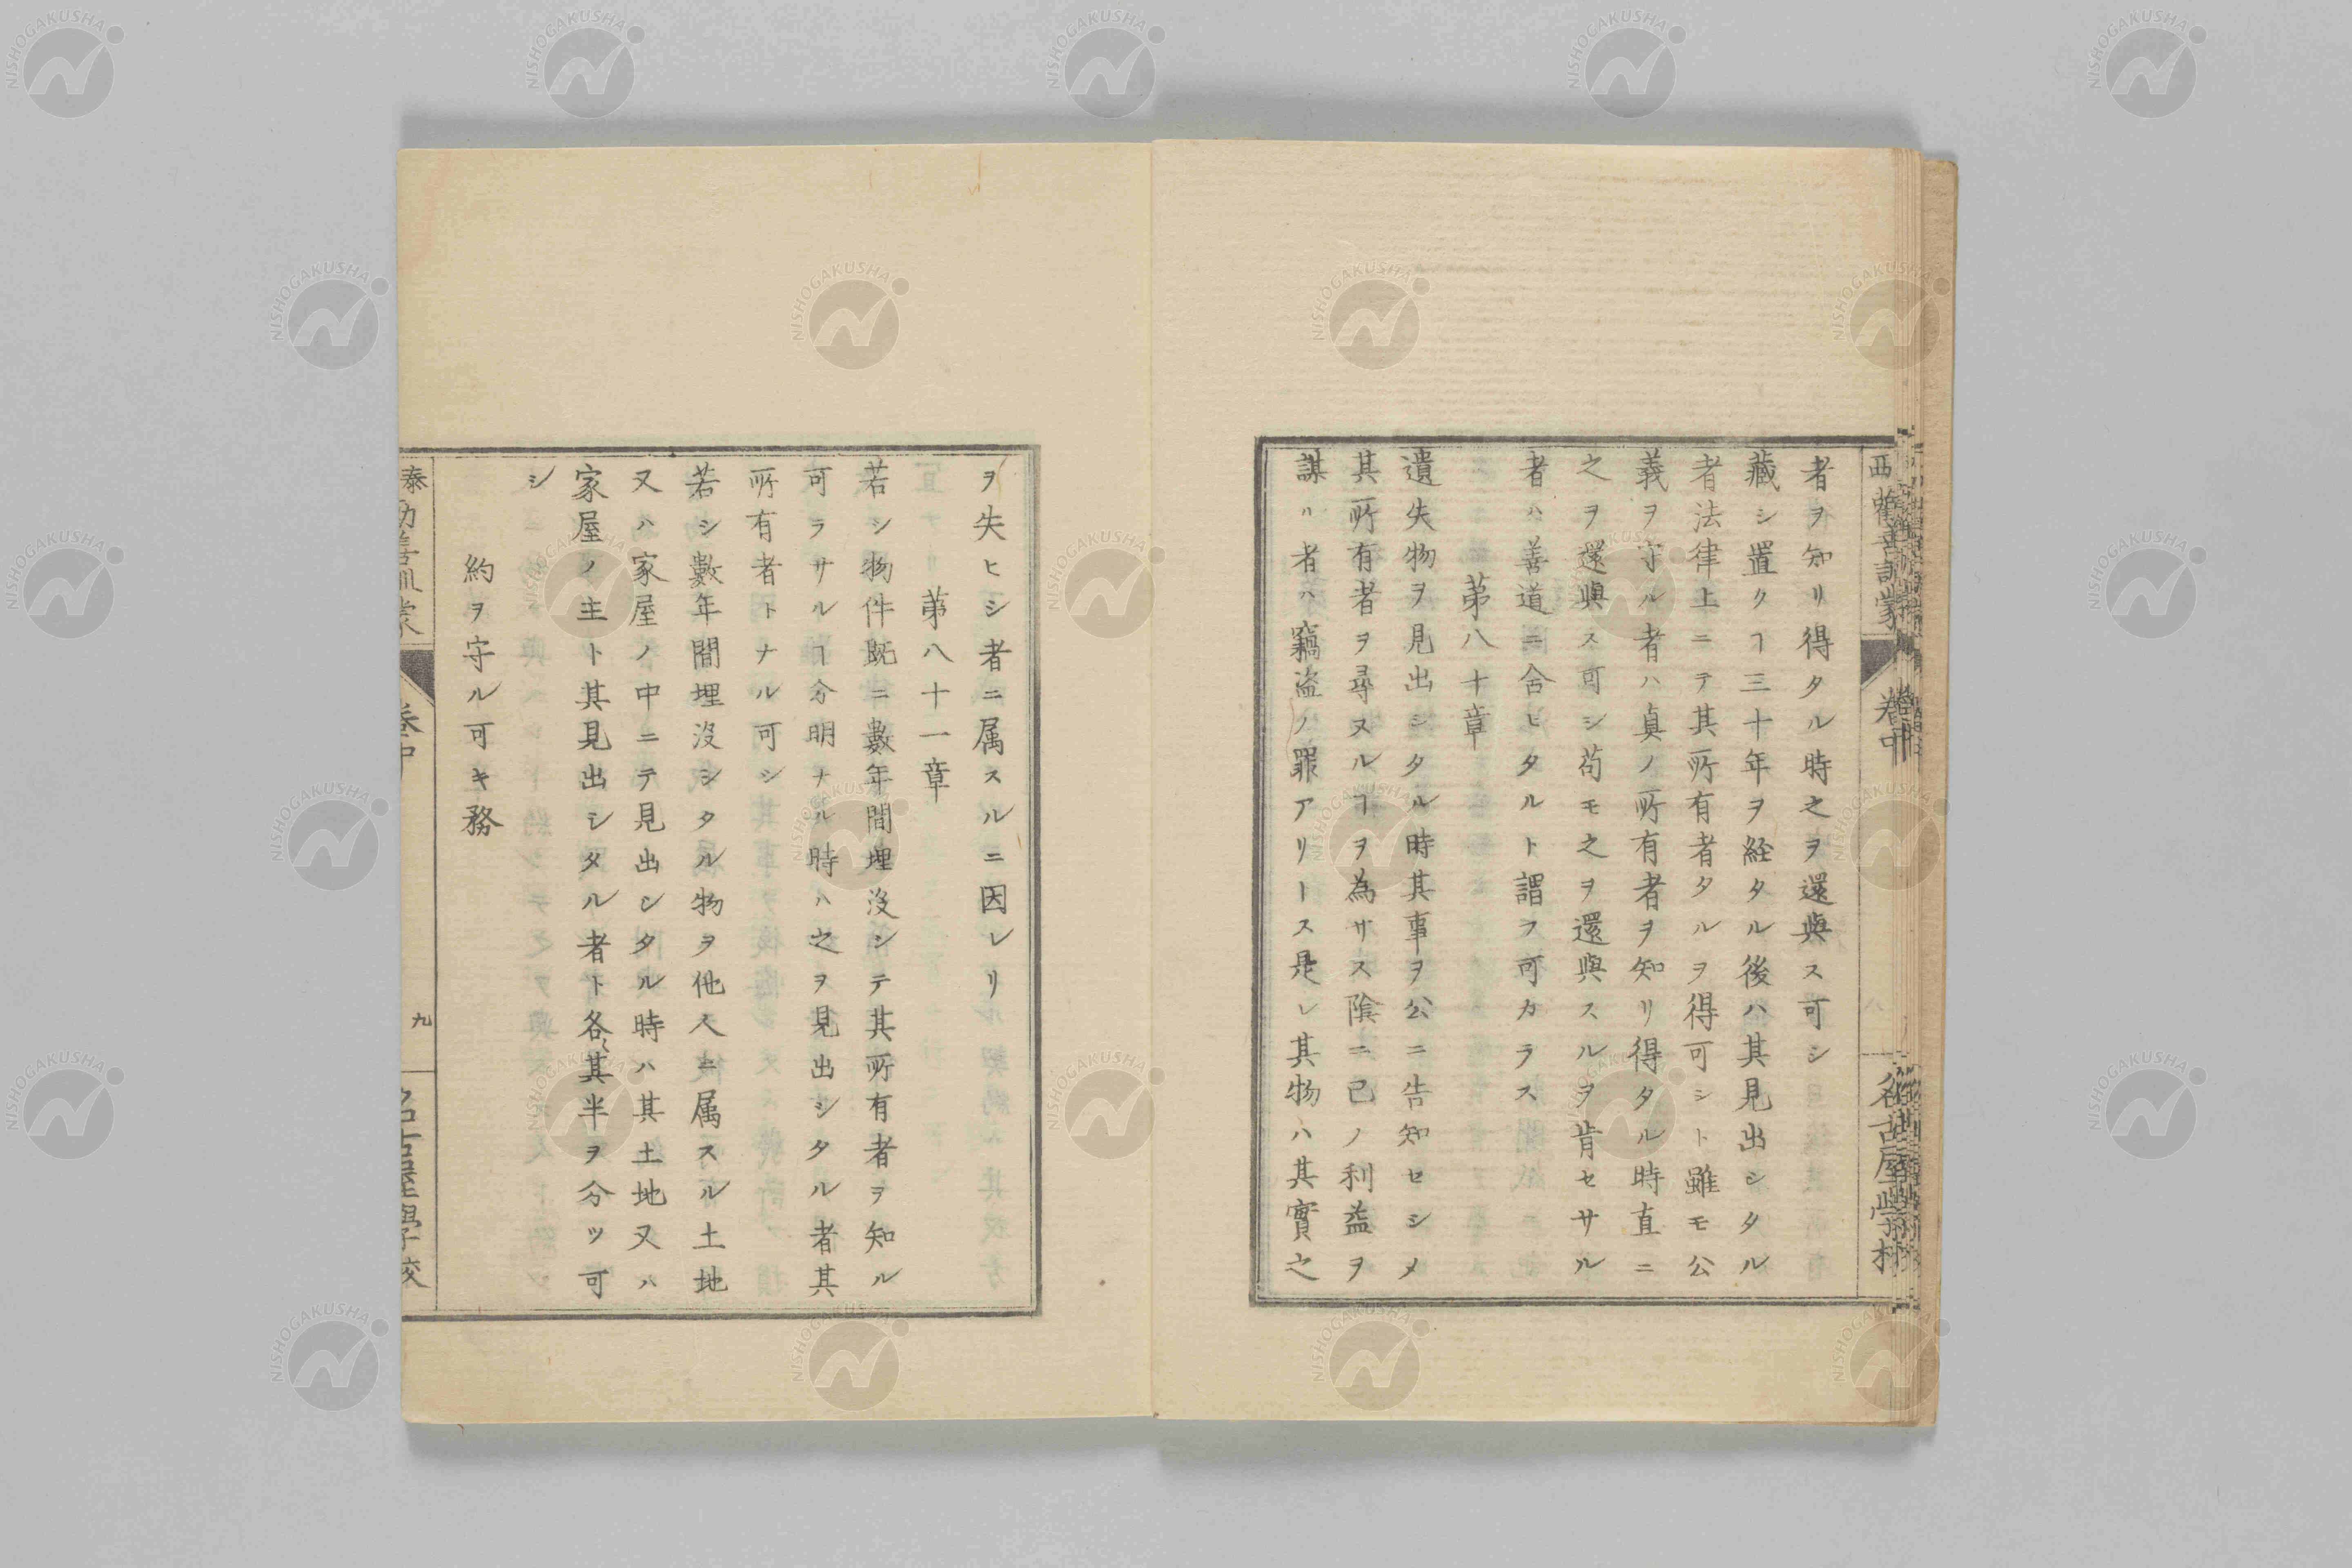 者ヲ知リ得タル時之ヲ還與ス可シ
藏シ置クヿ三十年ヲ経タル後ハ其見出シタル
者法律上ニテ其所有者タルヲ得可シト雖モ公
義ヲ守ル者ハ真ノ所有者ヲ知リ得タル時直ニ
之ヲ還與ス可シ苟モ之ヲ還與スルヲ肯セサル
者ハ善道ニ舍ヒタルト謂フ可カラス
第八十章
遺失物ヲ見出シタル時其事ヲ公ニ告知セシメ
其所有者ヲ尋ヌルヿヲ為サス陰ニ己ノ利益ヲ
謀ル者ハ竊盗ノ罪アリトス是レ其物ハ其實之
ヲ失ヒシ者ニ属スルニ因レリ
第八十一章
若シ物件既ニ數年間埋沒シテ其所有者ヲ知ル
可ラサルヿ分明ナル時ハ之ヲ見出シタル者其
所有者トナル可シ
若シ數年間埋沒シタル物ヲ他人ニ属スル土地
又ハ家屋ノ中ニテ見出シタル時ハ其土地又ハ
家屋ノ主ト其見出シタル者ト各其半ヲ分ツ可
シ
約ヲ守ル可キ務
泰
勧善訓蒙
巻中
九
名古屋學校
西
勧善訓蒙
巻中
名古屋學校
NISHOGAKUSHA